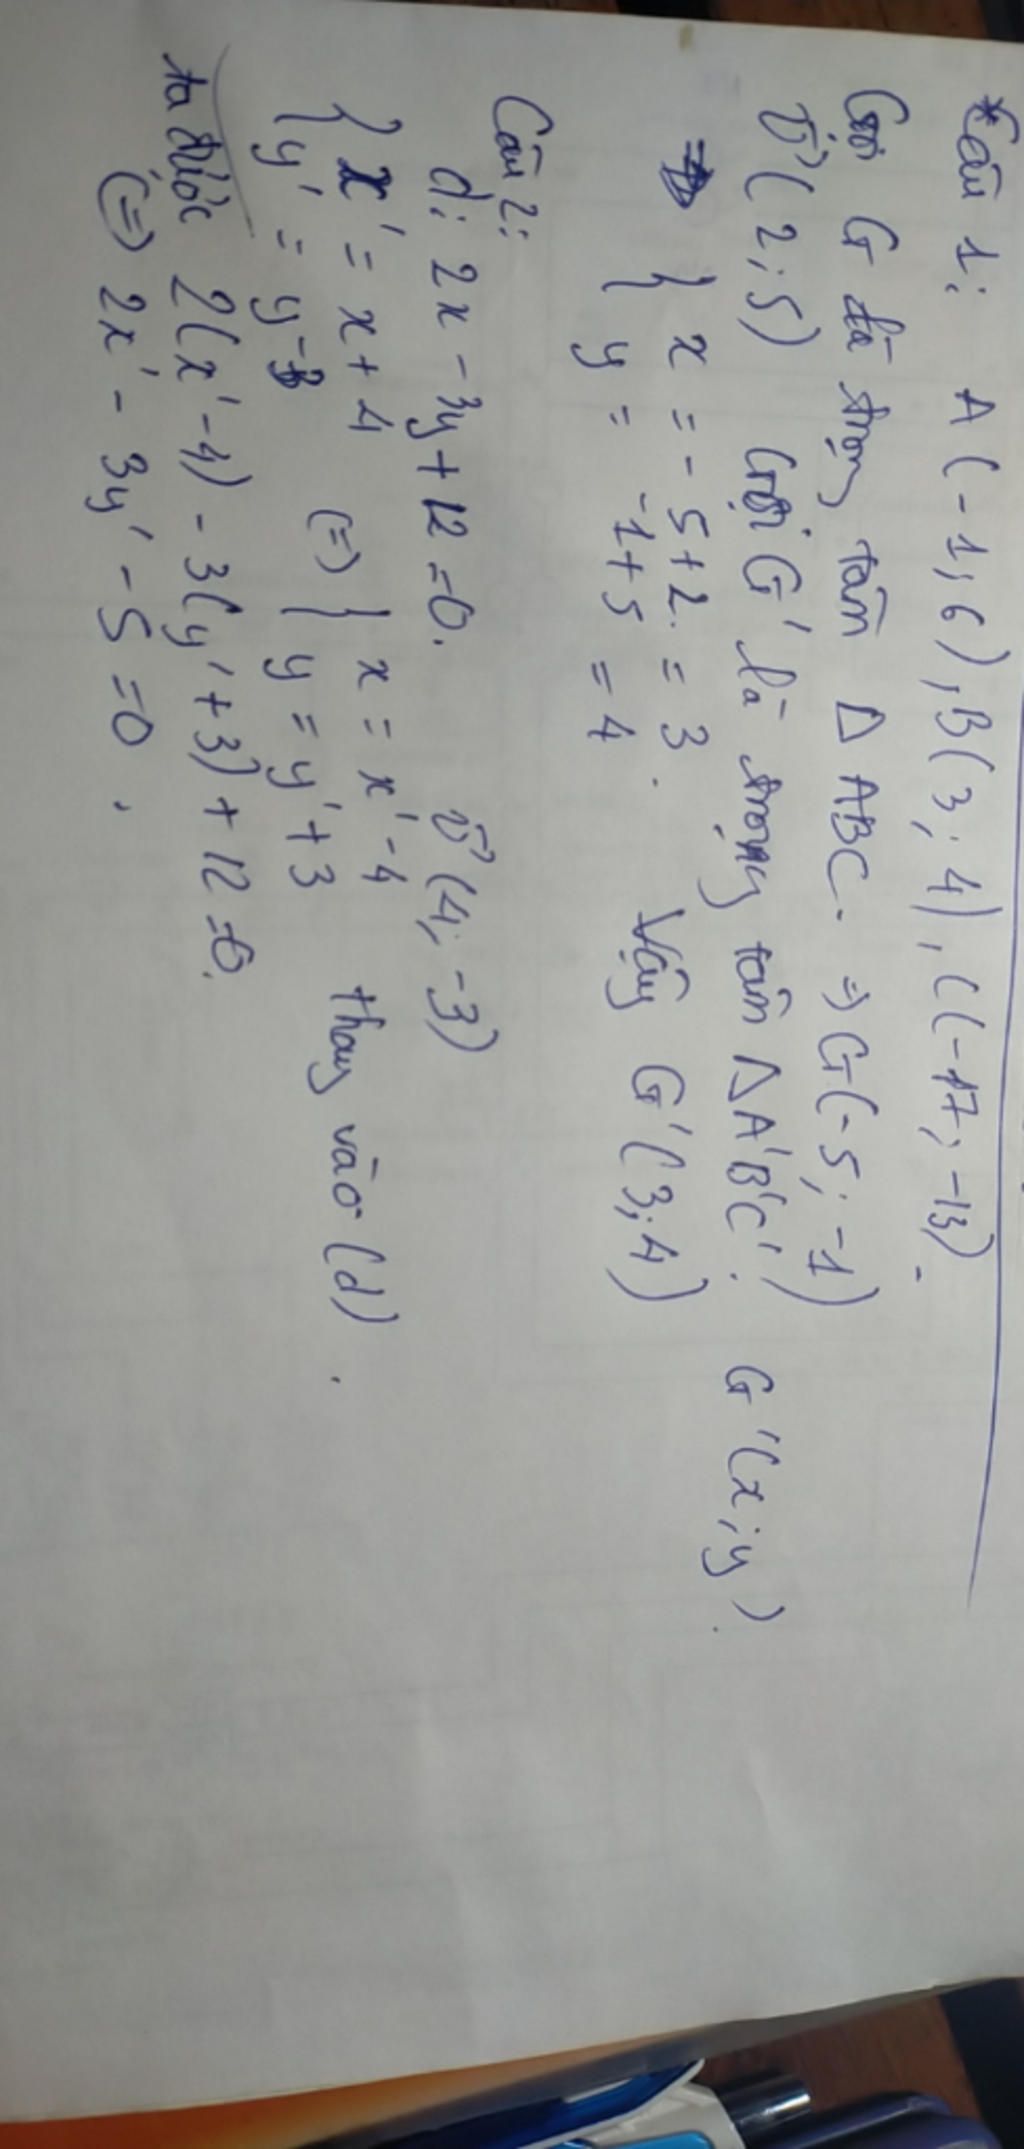 *Câu 1: A(-1;6), B(3;4), C(-17;-13).
Gọi G là trọng tâm Δ ABC. => G(-5;-1)
v→(2;5) Gọi G' là trọng tâm Δ A'B'C'. G'(x;y).
{ x = -5+2 = 3.
y = -1+5 = 4 Vậy G'(3;4)
Câu 2:
d: 2x - 3y + 12 = 0. v→(4;-3)
{ x' = x + 4
y' = y - 3 (=) { x = x' - 4
y = y' + 3 thay vào (d).
ta được 2(x' - 4) - 3(y' + 3) + 12 = 0.
(=) 2x' - 3y' - 5 = 0.